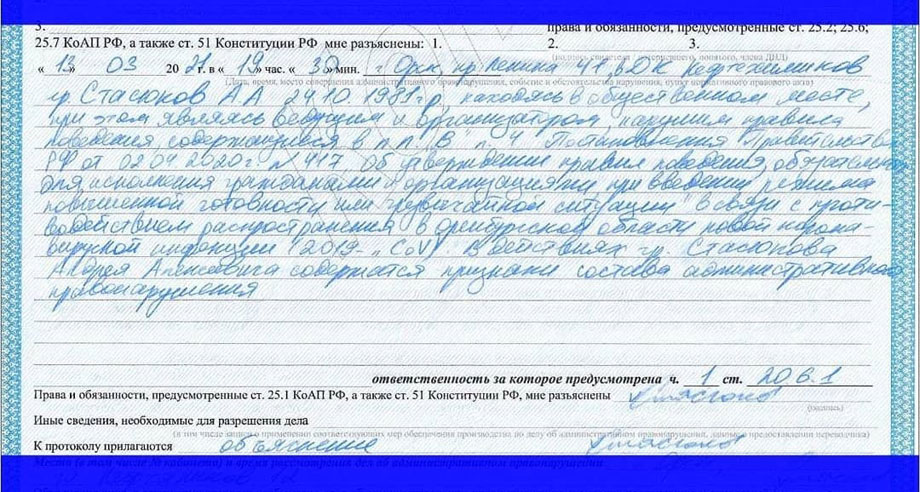 3.
права и обязанности, предусмотренные ст. 25.2; 25.6;
25.7 КоАП РФ, а также ст. 51 Конституции РФ мне разъяснены: 1. 2. 3.
« 13 » 03 20 21 г. в « 19 » час. « 30 » мин. г Орск, пр. Ленина ДК Нефтехимиков
гр. Стасюков А А 24.10. 1981 г.р, находясь в общественном месте,
при этом являясь ведущим и организатором, нарушил правила
поведения, содержащиеся в п.п. "В" п. 4 Постановления Правительства
РФ от 02 04 2020 г N 417 Об утверждении правил поведения, обязательных
для исполнения гражданами и организациями при введении режима
повышенной готовности или чрезвычайной ситуации" в связи с проти-
водействием распространения в Оренбургской области новой корона-
вирусной инфекции (2019- nCoV). В действиях гр. Стасюкова
Андрея Алексеевича содержатся признаки состава административного
правонарушения
ответственность за которое предусмотрена ч. 1 ст. 20.6.1
Права и обязанности, предусмотренные ст. 25.1 КоАП РФ, а также ст. 51 Конституции РФ, мне разъяснены
(подпись)
Иные сведения, необходимые для разрешения дела
(в том числе записи о применении соответствующих мер обеспечения производства по делу об административном правонарушении, данные о предоставлении переводчика)
К протоколу прилагаются объяснение
Место (в том числе № кабинета) и время рассмотрения дел об административном правонарушении